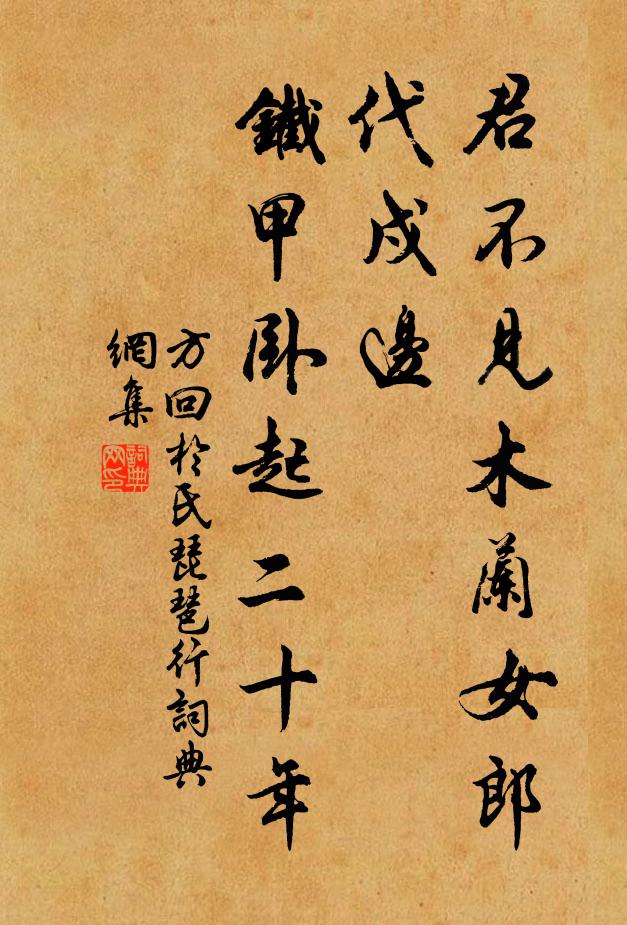 君不見木蘭女郎
代戍邊
鐵甲臥起二十年
方回於氏琵琶行詞典
網集
詞典
网印